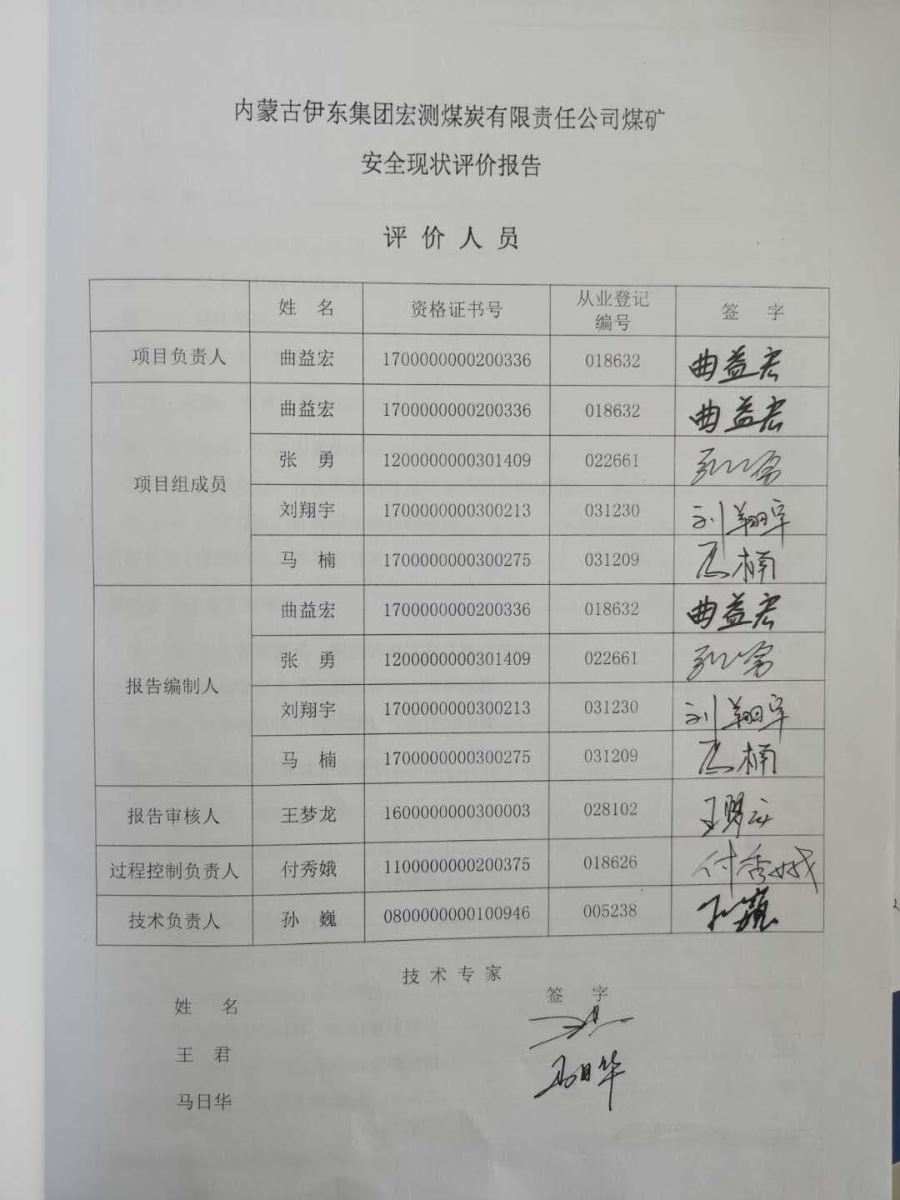 内蒙古伊东集团宏测煤炭有限责任公司煤矿
安全现状评价报告
评 价 人 员
姓 名 资格证书号 从业登记编号 签 字
项目负责人 曲益宏 1700000000200336 018632 曲益宏
项目组成员 曲益宏 1700000000200336 018632 曲益宏
张 勇 1200000000301409 022661 张勇
刘翔宇 1700000000300213 031230 刘翔宇
马 楠 1700000000300275 031209 马楠
报告编制人 曲益宏 1700000000200336 018632 曲益宏
张 勇 1200000000301409 022661 张勇
刘翔宇 1700000000300213 031230 刘翔宇
马 楠 1700000000300275 031209 马楠
报告审核人 王梦龙 1600000000300003 028102 王梦龙
过程控制负责人 付秀娥 1100000000200375 018626 付秀娥
技术负责人 孙 巍 0800000000100946 005238 孙巍
技 术 专 家
姓 名 签 字
王 君
马日华 马日华